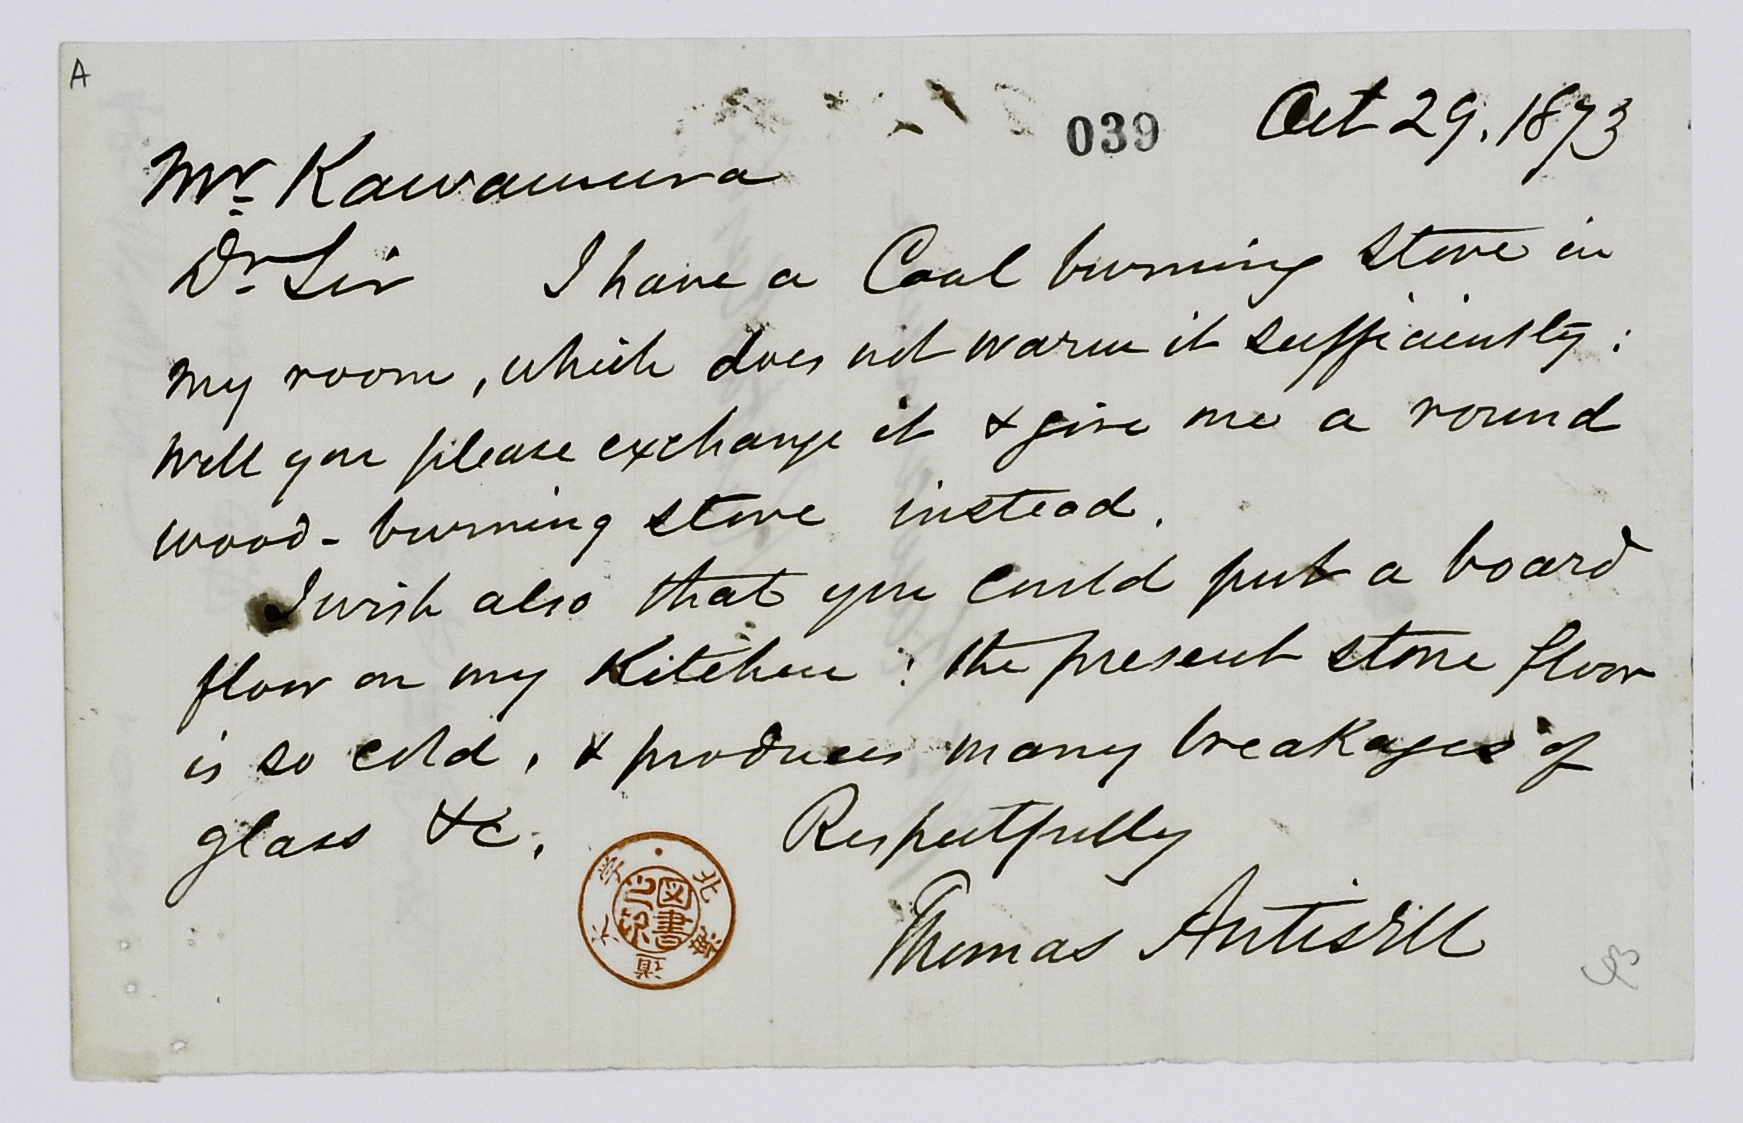 A
039
Oct 29, 1873
Mr. Kawamura
Dr. Sir I have a Coal burning stove in
my room, which does not warm it sufficiently:
Will you please exchange it & give me a round
wood-burning stove instead.
I wish also that you could put a board
floor on my Kitchen: the present stone floor
is so cold, & produces many breakages of
glass &c.
Respectfully
Thomas Antisell
北海道大学
図書之印